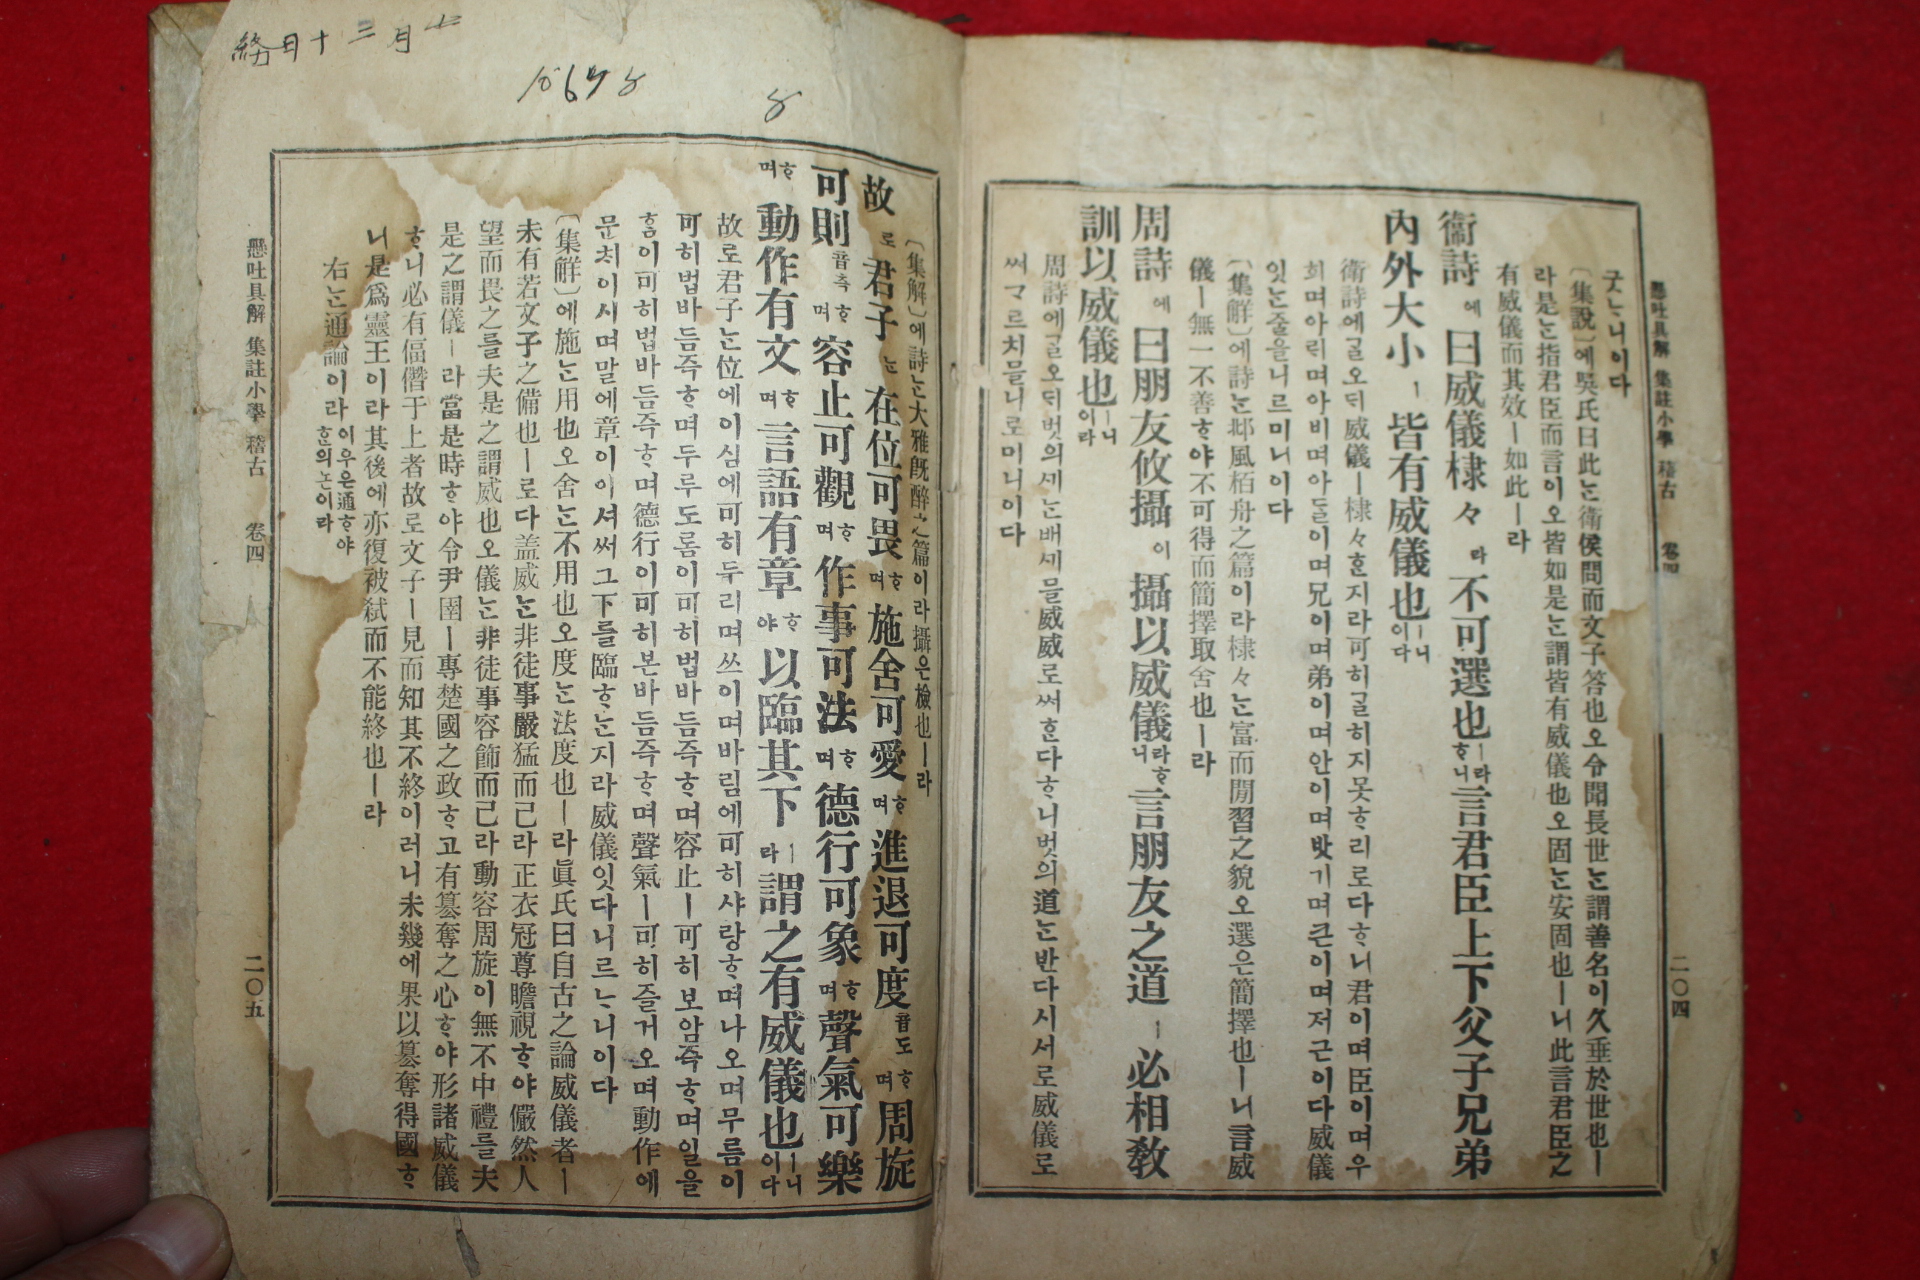 懸吐具解 集註小學 稽古 卷四 二〇四
굿ᄂᆞ니이다
〔集說〕에吳氏曰此ᄂᆞᆫ衛侯問而文子答也오令聞長世ᄂᆞᆫ謂善名이久垂於世也ㅣ
라是ᄂᆞᆫ指君臣而言이오皆如是ᄂᆞᆫ謂皆有威儀也오固ᄂᆞᆫ安固也ㅣ니此言君臣之
有威儀而其效ㅣ如此ㅣ라
衞詩에曰威儀棣々라不可選也ㅣ라ᄒᆞ니言君臣上下父子兄弟
內外大小ㅣ皆有威儀也ㅣ니이다
衛詩에ᄀᆞᆯ오ᄃᆡ威儀ㅣ棣々ᄒᆞᆫ지라可히ᄀᆞᆯ히지못ᄒᆞ리로다ᄒᆞ니君이며臣이며우
희며아ᄅᆡ며아비며아ᄃᆞᆯ이며兄이며弟이며안이며밧기며큰이며저근이다威儀
잇ᄂᆞᆫ줄을니르미니이다
〔集解〕에詩ᄂᆞᆫ邶風栢舟之篇이라棣々ᄂᆞᆫ富而閒習之貌오選은簡擇也ㅣ니言威
儀ㅣ無一不善ᄒᆞ야不可得而簡擇取舍也ㅣ라
周詩에曰朋友攸攝이攝以威儀라ᄒᆞ니言朋友之道ㅣ必相敎
訓以威儀也ㅣ니이라
周詩에ᄀᆞᆯ오ᄃᆡ벗의셰ᄂᆞᆫ배셰믈威威로써ᄒᆞᆫ다ᄒᆞ니벗의道ᄂᆞᆫ반다시서로威儀로
써ᄀᆞ르치믈니로미니이다
〔集解〕에詩ᄂᆞᆫ大雅旣醉之篇이라攝은檢也ㅣ라
故로君子ᄂᆞᆫ在位可畏ᄒᆞ며施舍可愛ᄒᆞ며進退可度音도ᄒᆞ며周旋
可則音측ᄒᆞ며容止可觀ᄒᆞ며作事可法ᄒᆞ며德行可象ᄒᆞ며聲氣可樂
ᄒᆞ며動作有文ᄒᆞ며言語有章ᄒᆞ야以臨其下ㅣ라謂之有威儀也ㅣ니이다
故로君子ᄂᆞᆫ位에이심에可히두리며쓰이며바림에可히샤랑ᄒᆞ며나오며무름이
可히법바듬즉ᄒᆞ며두루도롬이可히법바듬즉ᄒᆞ며容止ㅣ可히보암즉ᄒᆞ며일을
홈이可히법바듬즉ᄒᆞ며德行이可히본바듬즉ᄒᆞ며聲氣ㅣ可히즐거오며動作에
문ᄎᆡ이시며말에章이이셔써그下를臨ᄒᆞᄂᆞᆫ지라威儀잇다니르ᄂᆞ니이다
〔集解〕에施ᄂᆞᆫ用也오舍ᄂᆞᆫ不用也오度ᄂᆞᆫ法度也ㅣ라眞氏曰自古之論威儀者ㅣ
未有若文子之備也ㅣ로다盖威ᄂᆞᆫ非徒事嚴猛而已라正衣冠尊瞻視ᄒᆞ야儼然人
望而畏之를夫是之謂威也오儀ᄂᆞᆫ非徒事容節而已라動容周旋이無不中禮를夫
是之謂儀ㅣ라當是時ᄒᆞ야令尹圍ㅣ專楚國之政ᄒᆞ고有簒奪之心ᄒᆞ야形諸威儀
ᄒᆞ니必有偪僭于上者故로文子ㅣ見而知其不終이러니未幾에果以簒奪得國ᄒᆞ
니是爲靈王이라其後에亦復被弒而不能終也ㅣ라
右ᄂᆞᆫ通論이라이우은通ᄒᆞ야ᄒᆞᆫ의논이라
懸吐具解 集註小學 稽古 卷四 二〇五